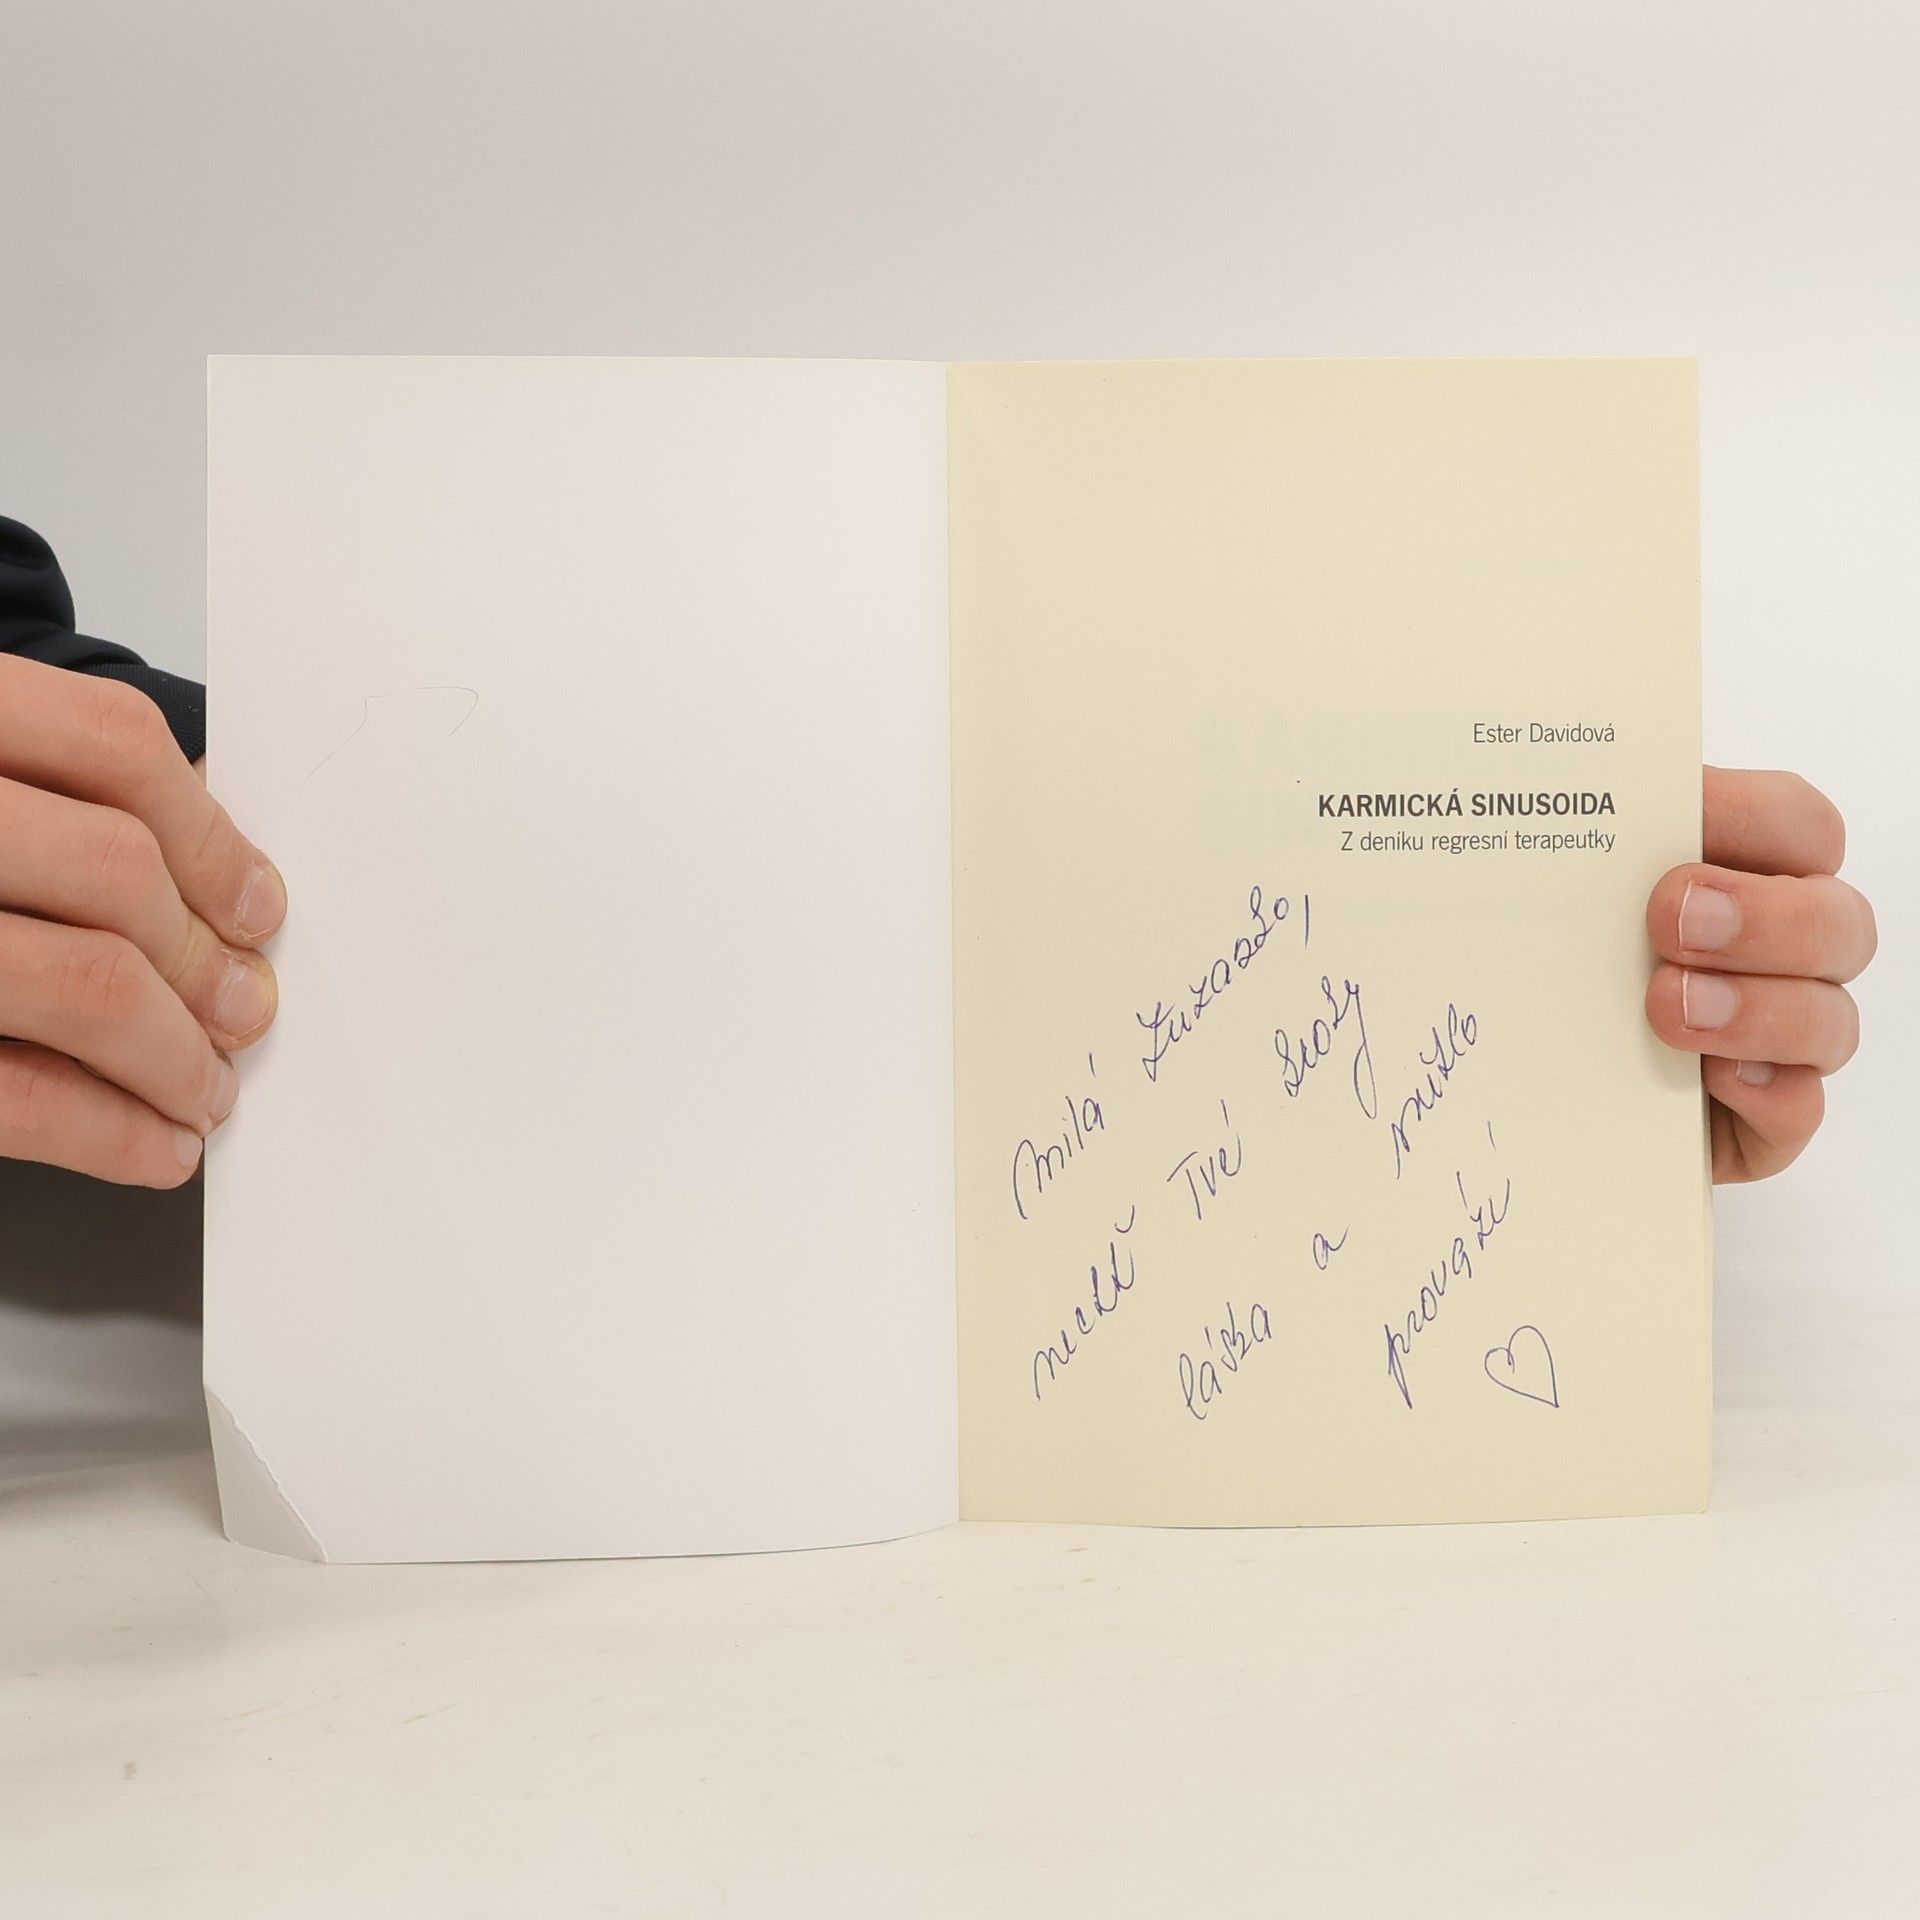 Ester Davidová
KARMICKÁ SINUSOIDA
Z deníku regresní terapeutky
Milá Zuzanko,
nechť Tvé kroky
láska a světlo
provází